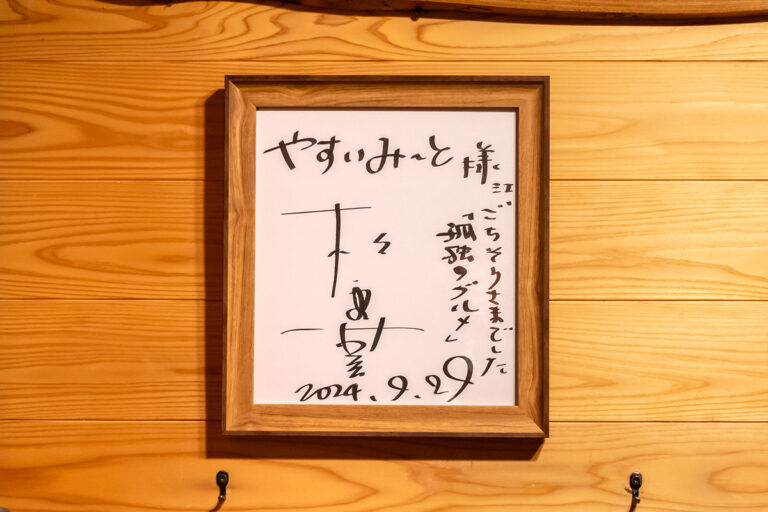 やすいみ〜と様江
ごちそうさまでした
「孤独のグルメ」
松重豊
2024.9.29